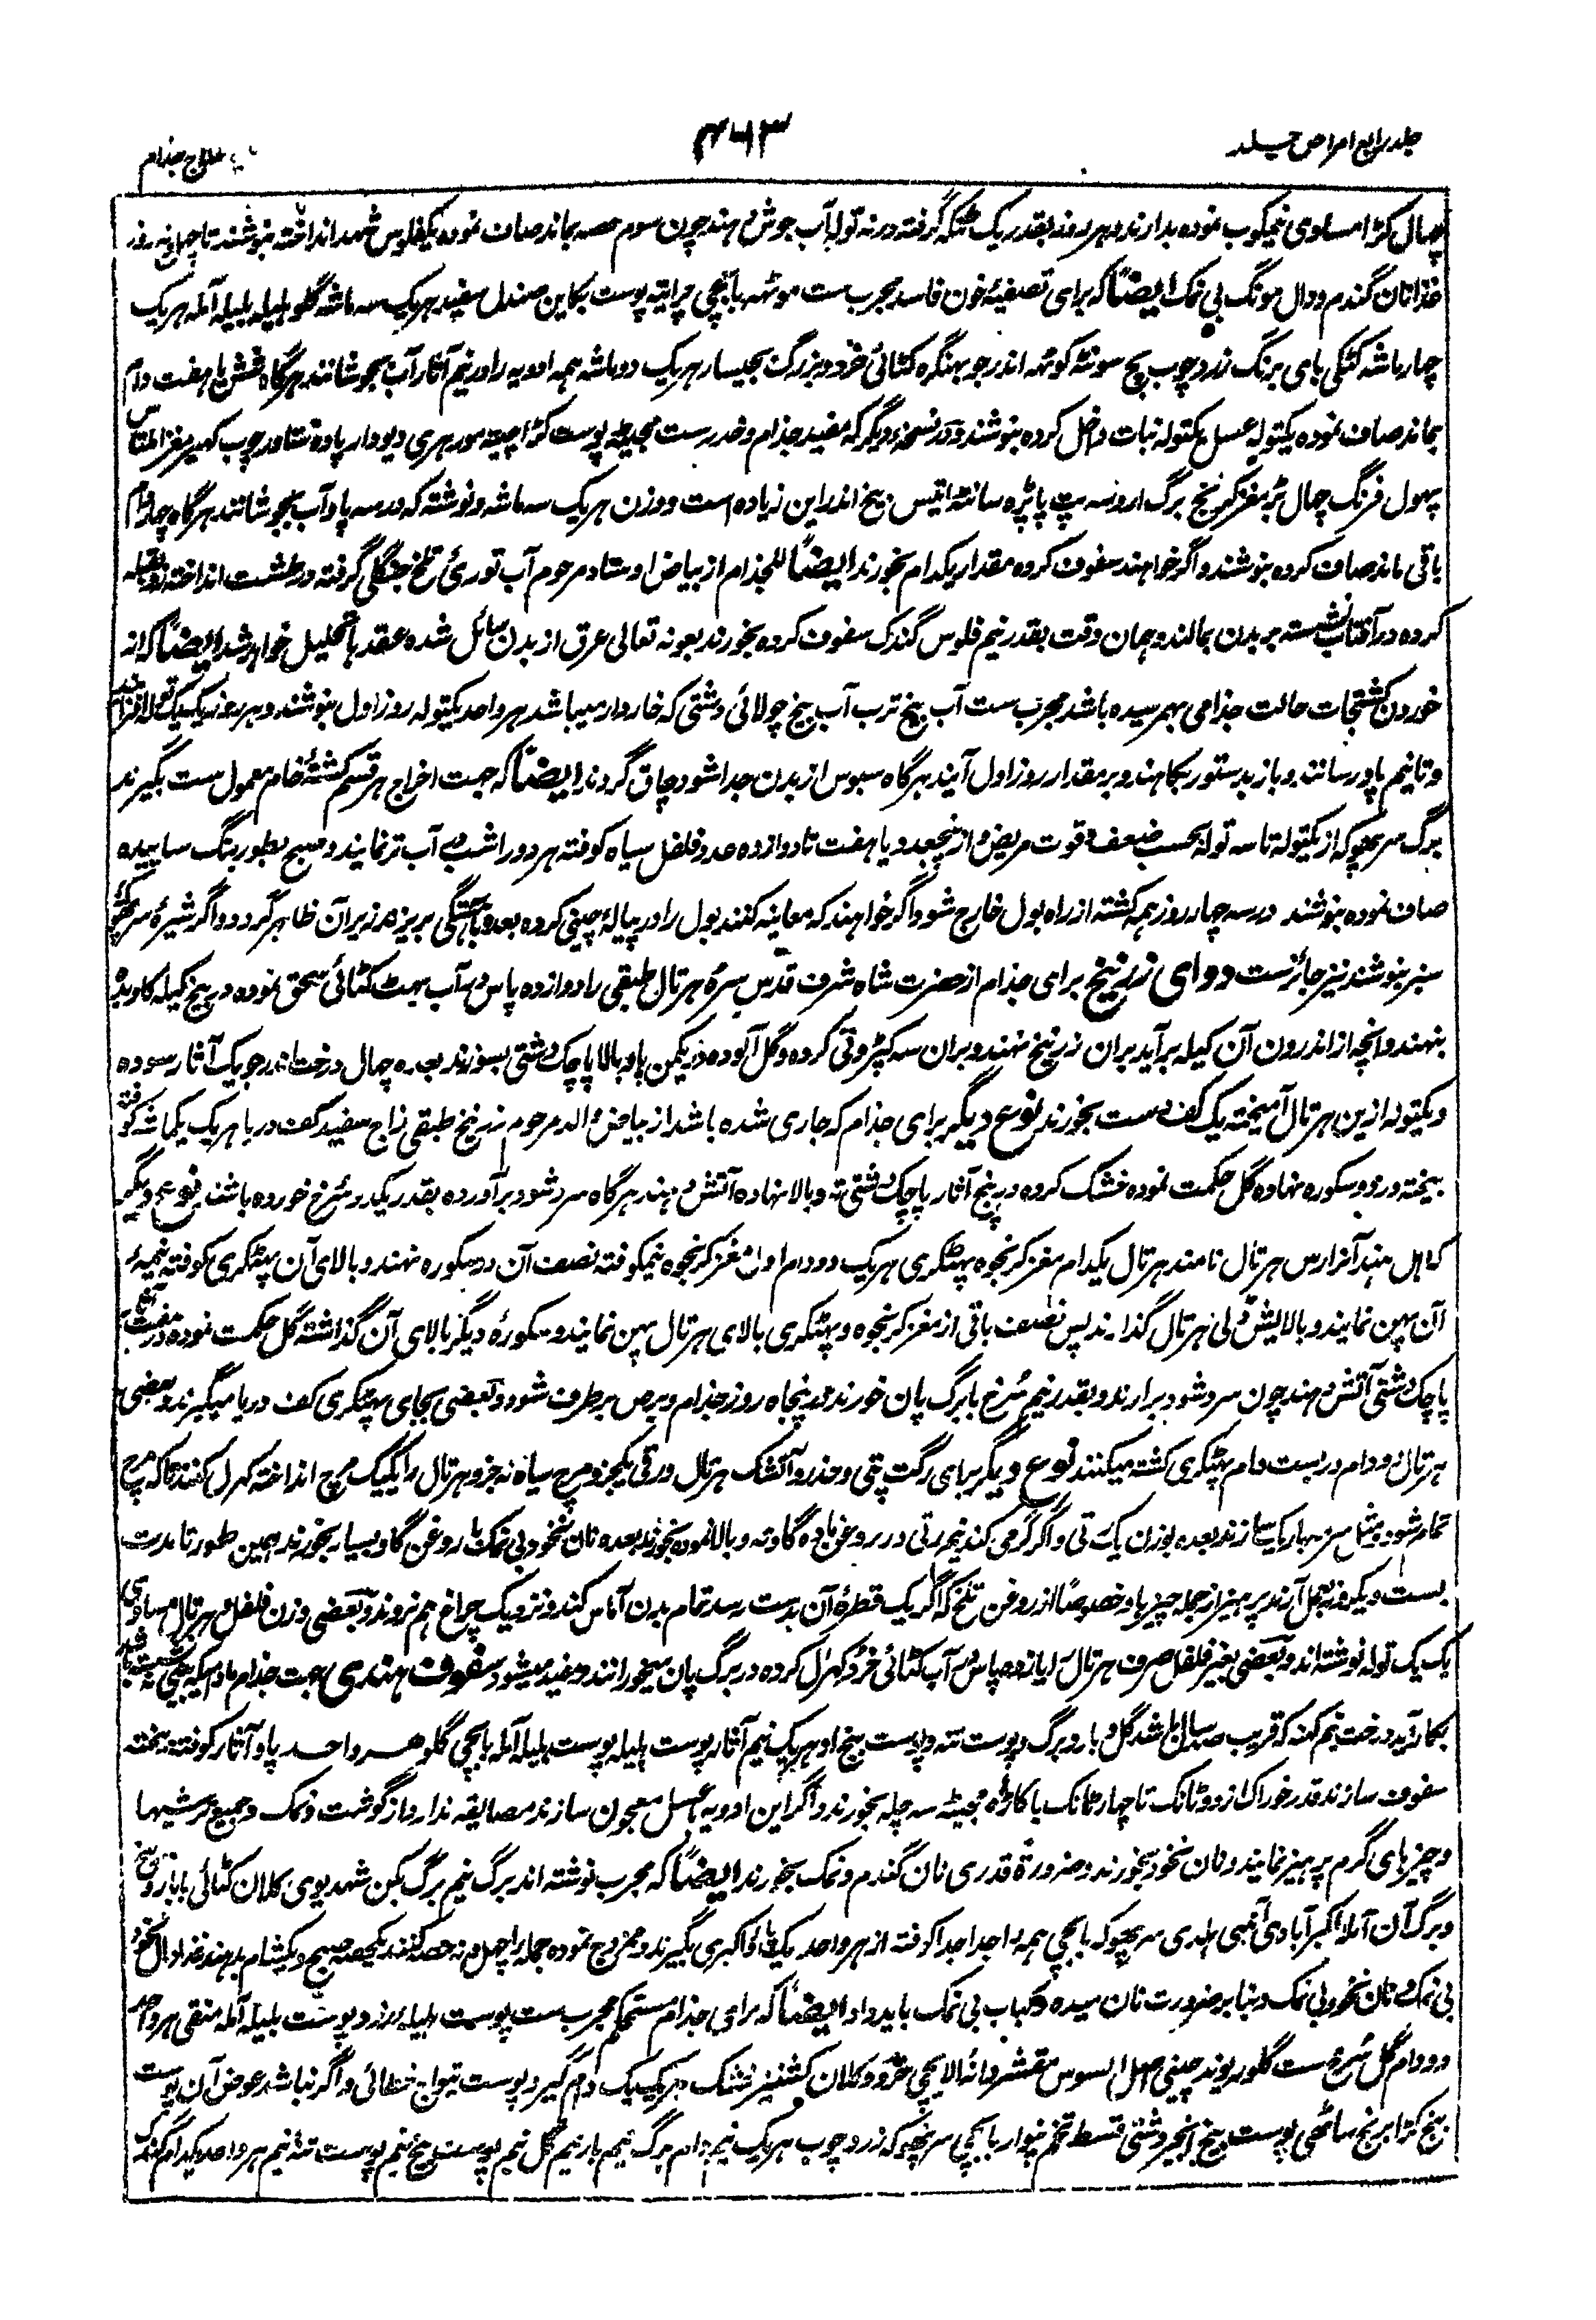 جلد رابع امراض جلد
علاج جذام
چهال کژا مساوی نیمکوب نموده بدارند و هر روز بقدر یک ٹنکه گرفته در نه توله آب جوش دهند چون سوم حصه بماند صاف نموده یکفلوس شهد انداخته بنوشند تا چهل روز
غذا نان گندم و دال مونگ بی نمک ایضاً که برای تصفیهٔ خون فاسد مجرب ست موتهه بابچی چرایته پوست بکاین صندل سفید هریک سه ماشه گلو هلیله بلیله آمله هریک
چار ماشه کٹکی بای برنگ زرد چوب بچ سونٹه کوٹهه اندر جو بهنگره کٹائی خرد و بزرگ بجیسار هریک دو ماشه همه ادویه را در نیم آثار آب بجوشانند هرگاه شش یا هفت دام
بماند صاف نموده یکتوله عسل یکتوله نبات داخل کرده بنوشند و در نسخهٔ دیگر که مفید جذام و خدر ست مجیٹه پوست کژا چیته مورهری دیودار پاده شاور چوب کهیر مغز املتاس
پهول فرنگ چهال بڑ مغز کرنج برگ اروسه پت پاپڑه سانٹه اتیس بیخ اندراین زیاده است و وزن هریک سه ماشه و نوشته که در سه پاو آب بجوشانند هرگاه چار دام
باقی ماند صاف کرده بنوشند و اگر خواهند سفوف کرده مقدار یکدام بخورند ایضاً للجذام از بیاض اوستاد مرحوم آب توری تلخ جنگلی گرفته در طشت انداخته رو بقبله
کرده در آفتاب نشسته بر بدن بمالند و همان وقت بقدر نیم فلوس گندک سفوف کرده بخورند بعونه تعالی عرق از بدن سائل شده عقدها تحلیل خواهد شد ایضاً که از
خوردن کشتجات حالت جذامی بهمرسیده باشد مجرب ست آب بیخ ترب آب بیخ چولائی دشتی که خاردار میباشد هر واحد یکتوله روز اول بنوشند و هر روز یک یک توله افزایند
و تا نیم پاو رسانند و باز بدستور بکاهند و بر مقدار روز اول آیند هرگاه سبوس از بدن جدا شود چاق گردند ایضاً که جهت اخراج هر قسم کشتهٔ خام معمول ست بگیرند
برگ سربهوکه از یکتوله تا سه توله بحسب ضعف و قوت مریض و از پنجعدد یا هفت تا دوازده عدد فلفل سیاه کوفته هر دو را شب در آب تر نمایند و صبح بطور بنگ ساییده
صاف نموده بنوشند در سه چهار روز همه کشته از راه بول خارج شود و اگر خواهند که معاینه کنند بول را در پیالهٔ چینی کرده بعده بآهستگی بریزند زیر آن ظاهر گردد و اگر شیرهٔ سربهوکه
سبز بنوشند نیز جائزست دوای زرنیخ برای جذام از حضرت شاه شرف قدس سره هرتال طبقی را دوازده پاس در آب بهٹ کٹائی سحق نموده در بیخ کیله کاویده
بنهند و انچه از اندرون آن کیله برآید بران زرنیخ نهند و بران سه کپڑوتی کرده و گل آلوده در یکمن پاو بالا پاچک دشتی بسوزند بعده چهال درخت اندرجو یک آثار سوده
و یکتوله ازین هرتال آمیخته یک کف دست بخورند نوع دیگر برای جذام که جاری شده باشد از بیاض والد مرحوم زرنیخ طبقی زاج سفید کف دریا هریک یکماشه کوفته
بیخته در دو سکوره نهاده گل حکمت نموده خشک کرده در پنج آثار پاچک دشتی ته و بالا نهاده آتش دهند هرگاه سرد شود برآورده بقدر یک دو سُرخ خورده باشند نوع دیگر
که اهل هند آنرا رس هرتال نامند هرتال یکدام مغز کرنجوه پهٹکری هریک دو دام اول مغز کرنجوه نیمکوفته نصف آن در سکوره نهند و بالای آن پهٹکری کوفته نیمهٔ
آن پهن نمایند و بالایش ڈلی هرتال گذارند پس نصف باقی از مغز کرنجوه و پهٹکری بالای هرتال پهن نمایند و سکورهٔ دیگر بالای آن گذاشته گل حکمت نموده در هفت آثار
پاچک دشتی آتش دهند چون سرد شود برارند و بقدر نیم سُرخ با برگ پان خورند در پنجاه روز جذام و برص برطرف شود و بعضی بجای پهٹکری کف دریا میگیرند و بعضی
هرتال دو دام در بست دام پهٹکری کشته میکنند نوع دیگر برای رگت پتی و خدر و آتشک هرتال ورقی یکجزو مرچ سیاه نه جزو هرتال را یک یک مرچ انداخته کهرل کنند تا که مرچ
تمام شود و مثل سرمه باریک سازند بعده بوزن یک رتی و اگر گرمی کند نیم رتی در روغن ماده گاو ته و بالا نموده بخورند بعده نان نخود بی نمک با روغن گاو بسیار بخورند بهمین طور تا مدت
بست و یکروز بعمل آرند پرهیز از جمله چیزها و خصوصاً از روغن تلخ که اگر یک قطرهٔ آن بدست رسد تمام بدن آماس کند و نزدیک چراغ هم نروند و بعضی وزن فلفل و هرتال مساوی
یک یک توله نوشته اند و بعضی بغیر فلفل صرف هرتال را یازده پاس در آب کٹائی خرد کهرل کرده در برگ پان میخورانند و مفید میشود سفوف هندی جهت جذام مادامیکه
بکار آید درخت نیم کهنه که قریب صد سال باشد گل و بار و برگ و پوست تنه و پوست بیخ او هریک نیم آثار پوست هلیله پوست بلیله آمله بابچی گلو هر واحد پاو آثار کوفته بیخته
سفوف سازند قدر خوراک از دو ٹانک تا چهار ٹانک با کاڑه مجیٹه سه چله بخورند و اگر این ادویه بعسل معجون سازند مضایقه ندارد از گوشت و نمک و جمیع ترشیها
و چیزهای گرم پرهیز نمایند و نان نخود بخورند و ضرورةً قدری نان گندم و نمک بخورند ایضاً که مجرب نوشته اند برگ نیم برگ بکن شهدیوی کلان کٹائی با بار و بیخ
و برگ آن آملا اکبرآبادی آنبی هلدی سربهوکه بابچی همه را جدا جدا کوفته از هر واحد یک پاو اکبری بگیرند و ممزوج نموده جمله را چهل و نه حصه کنند یکحصه صبح و یک شام بدهند غذا دال نخود
بی نمک و نان نخود بی نمک و بنا بر ضرورت نان میده و کباب بی نمک باید داد ایضاً که برای جذام مستحکم مجرب ست پوست هلیله زرد پوست بلیله آمله منقی هر واحد
دو دام گل سُرخ ست گلو ریوند چینی اصل السوس مقشر دانهٔ الایچی خرد و کلان کشنیز خشک هریک یک دام گیرد پوست تیواج خطائی و اگر نباشد عوض آن پوست
بیخ کژا برنج ساٹهی پوست بیخ انجیر دشتی قسط تخم پنوار بابچی سربهوکه زرد چوب هریک نیم دام برگ نیم بار نیم گل نیم پوست بیخ نیم پوست تنهٔ نیم هر واحد یکدام گندک